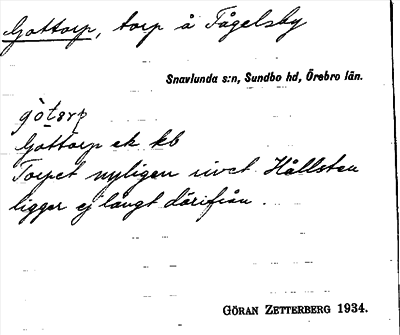 Gottorp, torp å Fågelsby
Snavlunda s:n, Sundbo hd, Örebro län.
gòtsrp
Gottorp ek kb
Torpet nyligen rivet. Hållsten
ligger ej långt därifrån.
GÖRAN ZETTERBERG 1934.